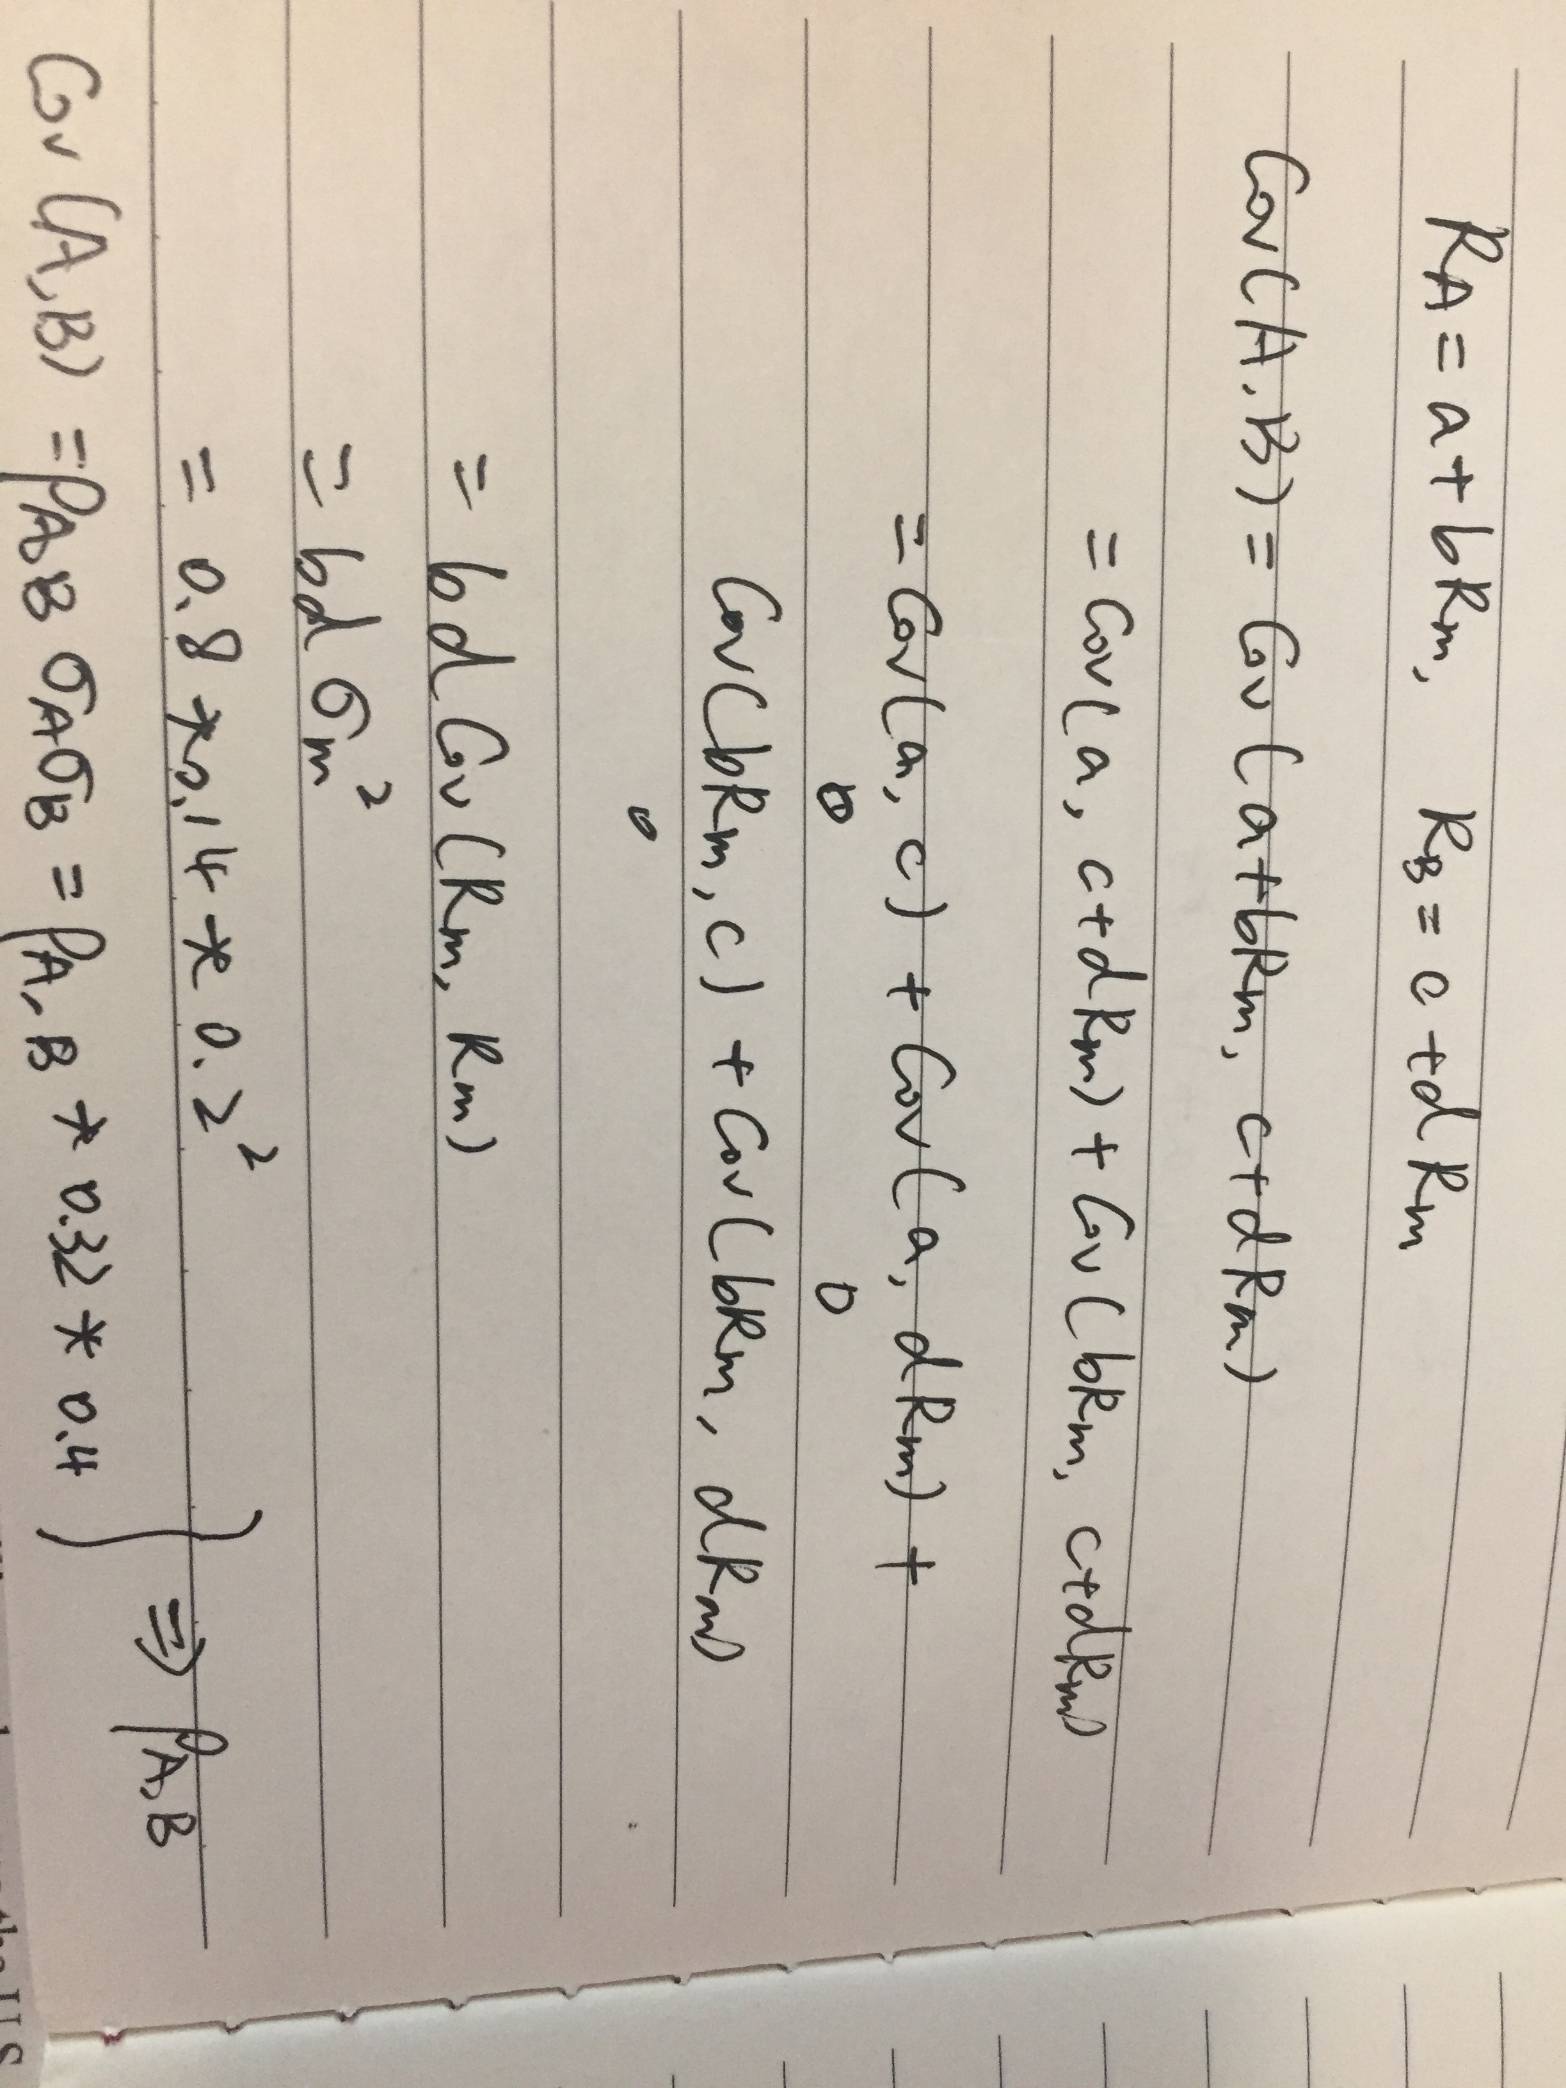 RA = a + bRm, RB = c + dRm
Cov(A,B) = Cov(a+bRm, c+dRm)
= Cov(a, c+dRm) + Cov(bRm, c+dRm)
= Cov(a, c) + Cov(a, dRm) +
0 0
Cov(bRm, c) + Cov(bRm, dRm)
0
= bd Cov(Rm, Rm)
= bd σm²
= 0.8 * 0.14 * 0.2²
Cov(A,B) = ρA,B σA σB = ρA,B * 0.32 * 0.4 } ⇒ ρA,B